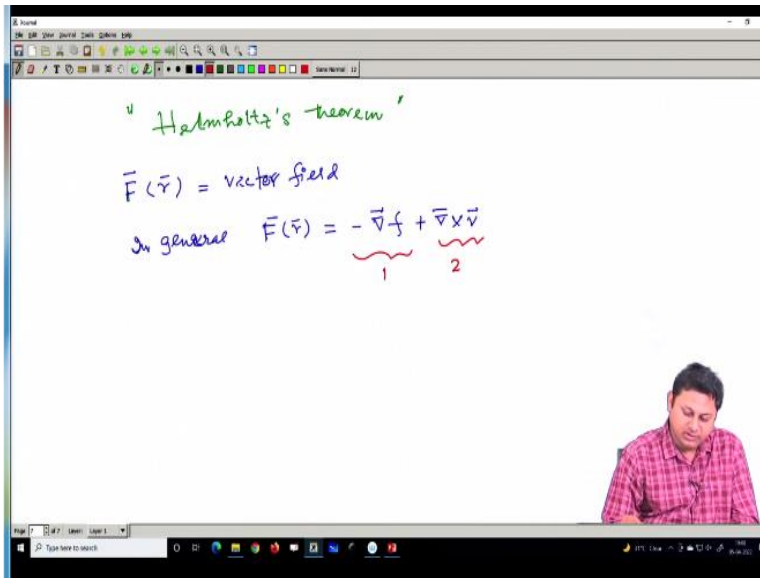 Journal
File Edit View Journal Tools Options Help
Sans Normal 12
"Helmholtz's theorem"
F̄(r̄) = vector field
In general F̄(r̄) = - ∇⃗f + ∇̄×v⃗
1 2
Page 7 of 7 Layer: Layer 1
Type here to search